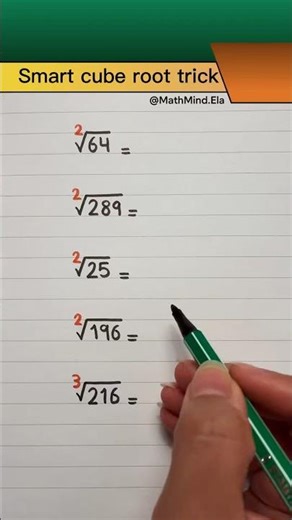 Smart cube root trick
@MathMind.Ela
²√64 =
²√289 =
²√25 =
²√196 =
³√216 =